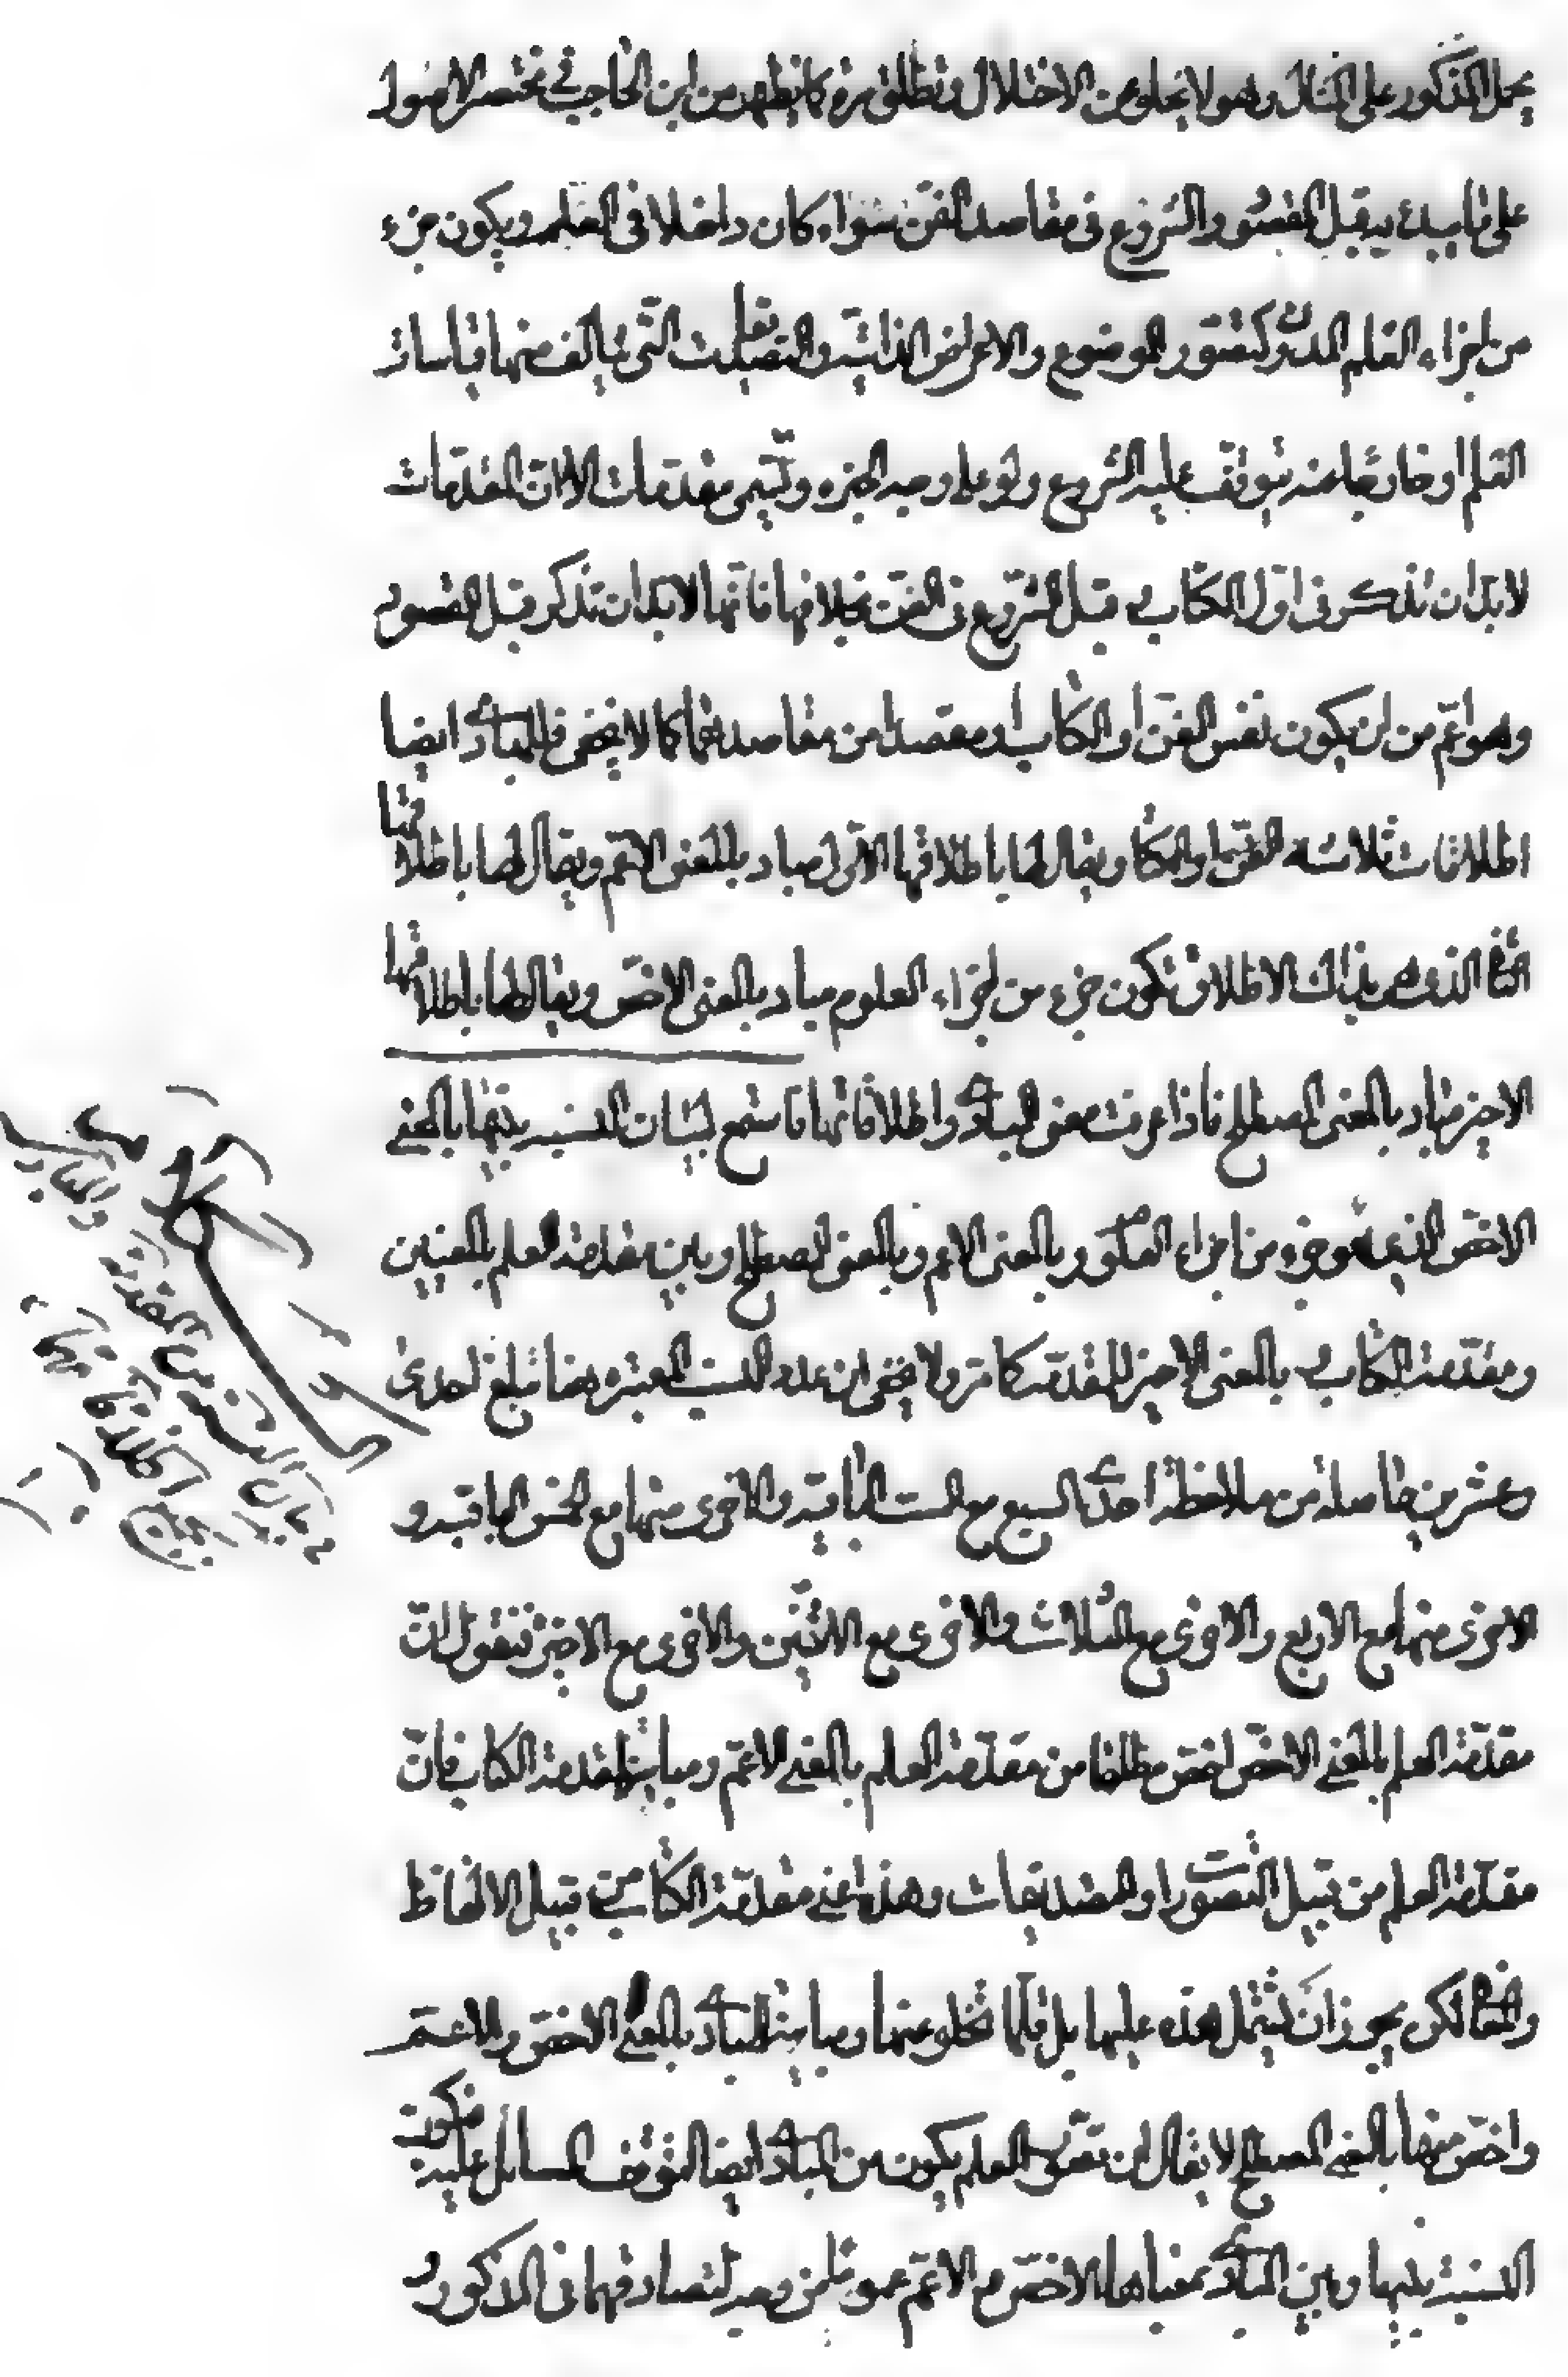 يحمل المذكور على المثال وهو لا يخلو عن الاختلال وتطلق مرة كما يظهر من ابن الحاجب في مختصر الاصول
على ما يبدء به قبل المقصود والشروع في مقاصد الفن سواء كان داخلا في العلم ويكون جزء
من اجزاء العلم المدون كتصور الموضوع والاعراض الذاتية والتصديقات التي يتالف منها قياسات
العلم او خارجا منه يتوقف عليه الشروع ولو على وجه الخبرة وتسمى مقدمات الا ان المقدمات
لا بد ان تذكر في اول الكتاب قبل الشروع في الفن بخلافها فانها لا بد ان تذكر قبل المقصود
وهو اعم من ان يكون نفس الفن او الكتاب او مقصدا من مقاصدهما كما لا يخفى فللمبادي ايضا
اطلاقات ثلاثة ويقال لها باطلاقها الاول مباد بالمعنى الاعم ويقال لها باطلاقها
الثاني الذي هي بذلك الاطلاق تكون جزء من اجزاء العلوم مباد بالمعنى الاخص ويقال لها باطلاقها
الاخير مباد بالمعنى المصطلح فاذا عرفت معنى المبادي واطلاقاتها فاستمع لبيان النسبة بينها بالمعنى
الاخص الذي هو جزء من اجزاء العلوم وبالمعنى الاعم وبالمعنى المصطلح وبين مقدمة العلم بالمعنيين
ومقدمة الكتاب بالمعنى الاخير للمقدمة كما مر ولا يخفى ان عدد النسب المعتبرة هنا تبلغ احدى
وعشرين حاصلة من ملاحظة احدى السبع مع الست الباقية والاخرى منها مع الخمس الباقية و
الاخرى منها مع الاربع والاخرى مع الثلاث والاخرى مع الاثنين والاخرى مع الاخيرة فنقول ان
مقدمة العلم بالمعنى الاخص اخص مطلقا من مقدمة العلم بالمعنى الاعم ومباينة لمقدمة الكتاب فان
مقدمة العلم من قبيل التصورات او التصديقات وهذه اعني مقدمة الكتاب من قبيل الالفاظ
لكن يجوز ان يشتمل هذه عليها بل قلما تخلو عنها ومباينة للمبادي بالمعنى الاخص والاعم
واخص منها بالمعنى المصطلح لا يقال ان تعريف العلم يكون من المبادي ايضا لتوقف المسائل عليه فيكون
النسبة بينها وبين المبادي بمعناها الاخص والاعم عموما من وجه لتصادقهما في المذكور و